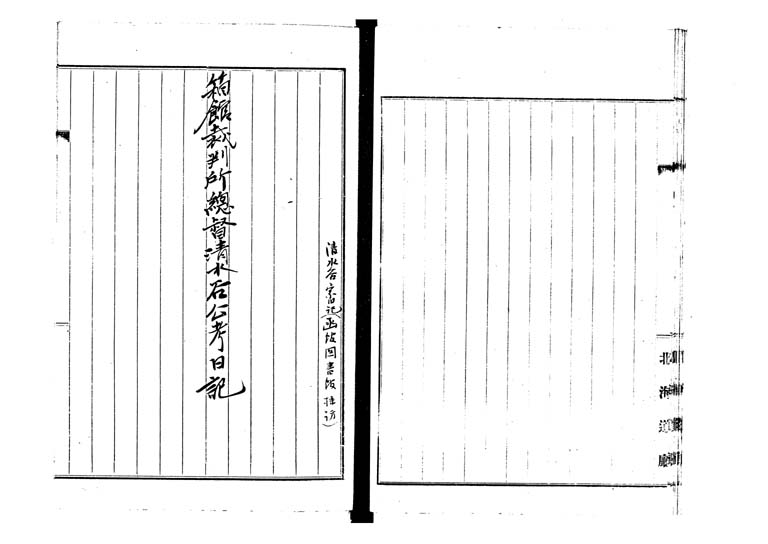 北海道廳
清水谷家記(函館図書館採訪)
箱館裁判所總督清水谷公考日記